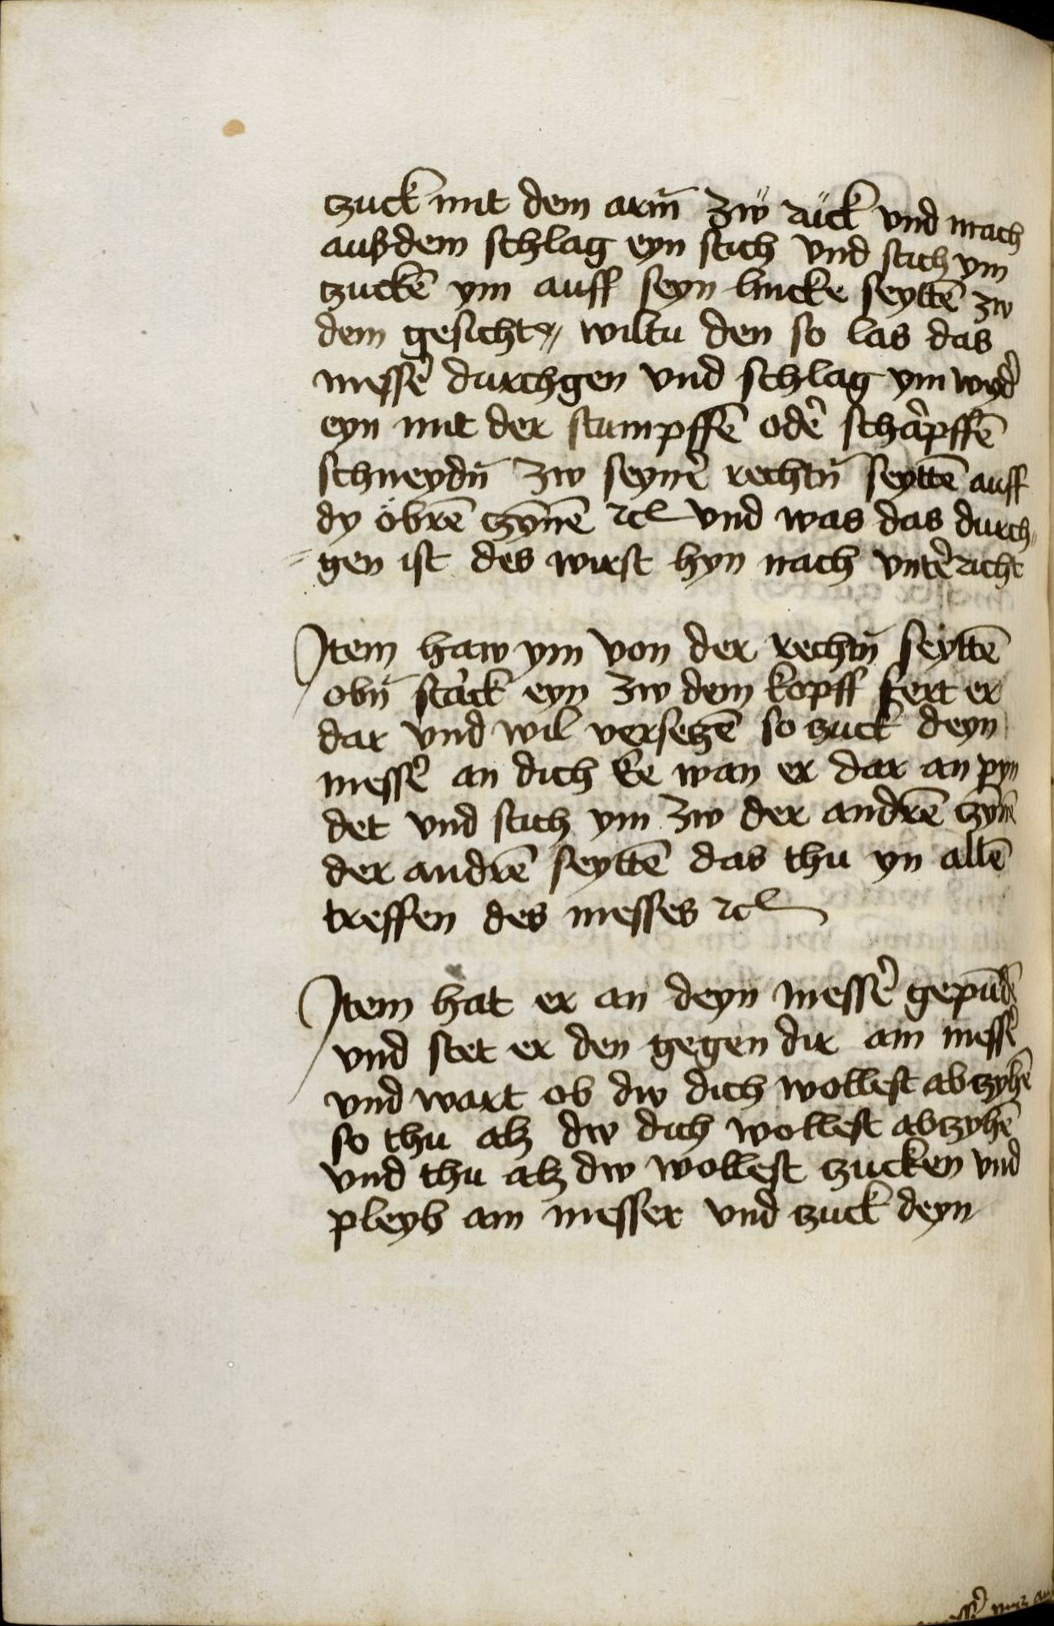 tzuck mit dem arm̄ zẅ rück vnd mach
aus dem schlag eyn stich vnd stich ym
tzuckē ym auff seyn lincke seyttē zw
dem gesicht wiltu den so las das
messẽ durchgen vnd schlag ym wyd̃
eyn mit der stumpffē odẽ schãrpffē
schneydn̄ zw seynẽ rechtn̄ seyttē auff
dy öbrē tzynnē ꝛcꝭ vnd was das durch„
„gen ist des wirst hyn nach vntẽricht
Jtem haw ym von der rechtn̄ seyttē
obn̄ starck eyn zw dem kopff fert er
dar vnd wil versetzē so zuck deyn
messẽ an dich Ee wan er dar an pyn
det vnd stich ym zw der andrē tzynē
der andrē seyttē das thu yn allē
treffen des messes ꝛcꝭ
Jtem hat er an deyn messẽ gepūdē
vnd stet er den gegen dir am messẽ
vnd wart ob dw dich wollest abtzyhē
so thu alz dw dich wollest abtzyhē
vnd thu alz dw wollest tzucken vnd
pleyb am messer vnd tzuck deyn